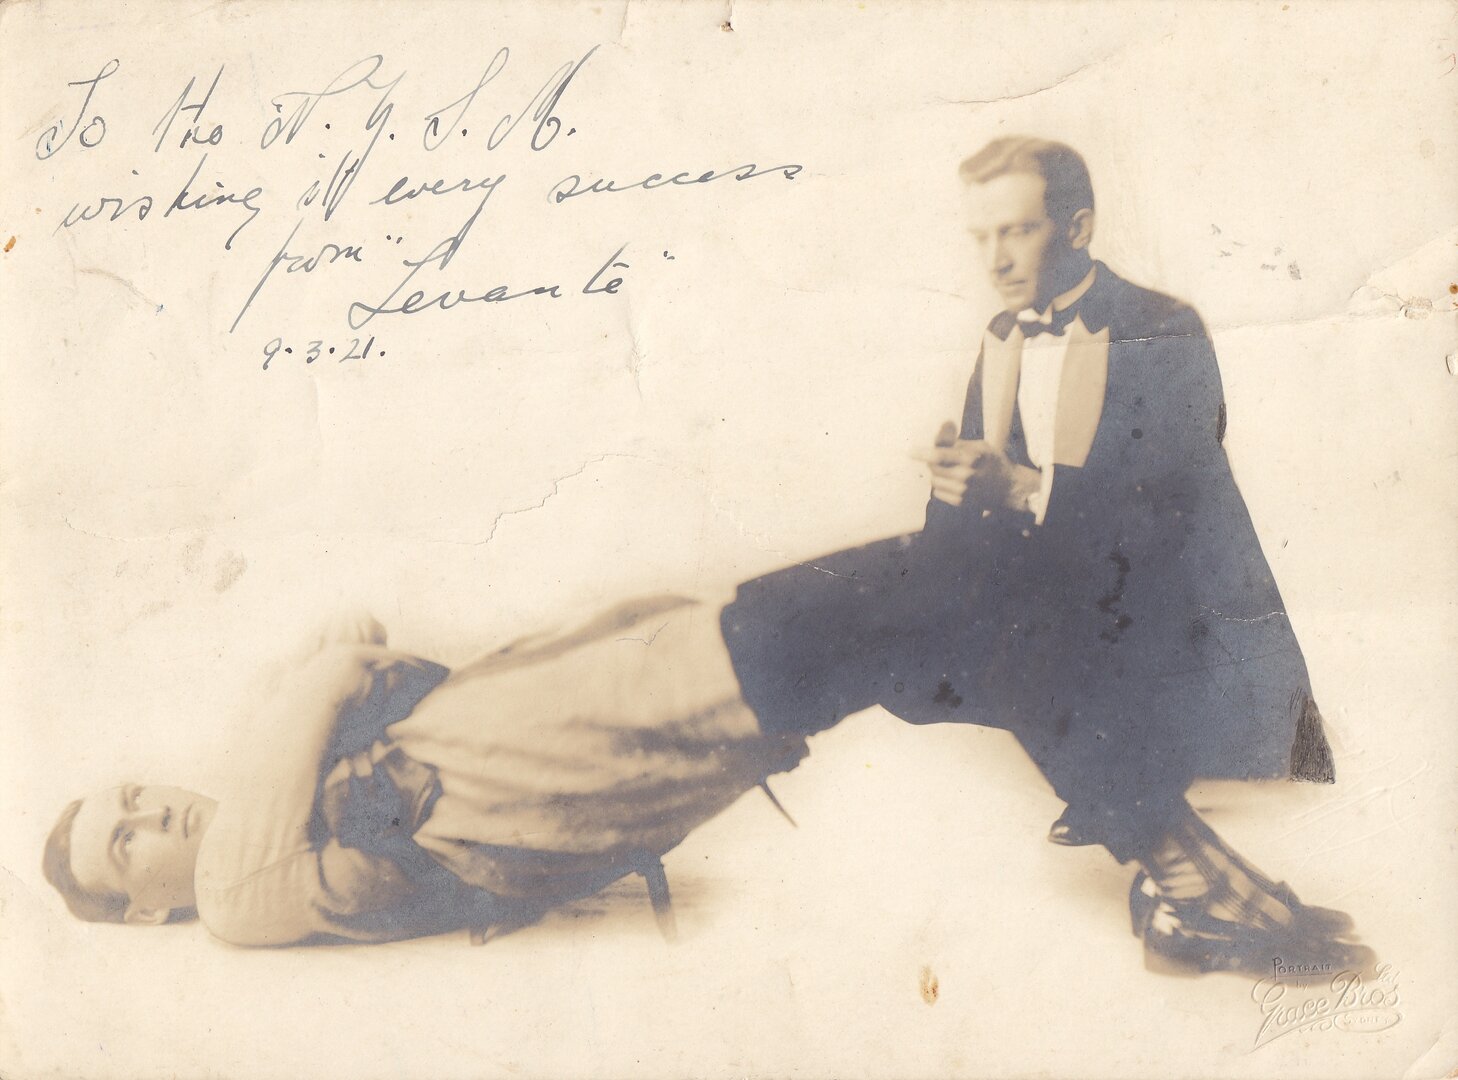 To the N.Y.S.M.
wishing it every success
from "Levanté"
9.3.21.
PORTRAIT
by
Grace Bros. Ltd
SYDNEY